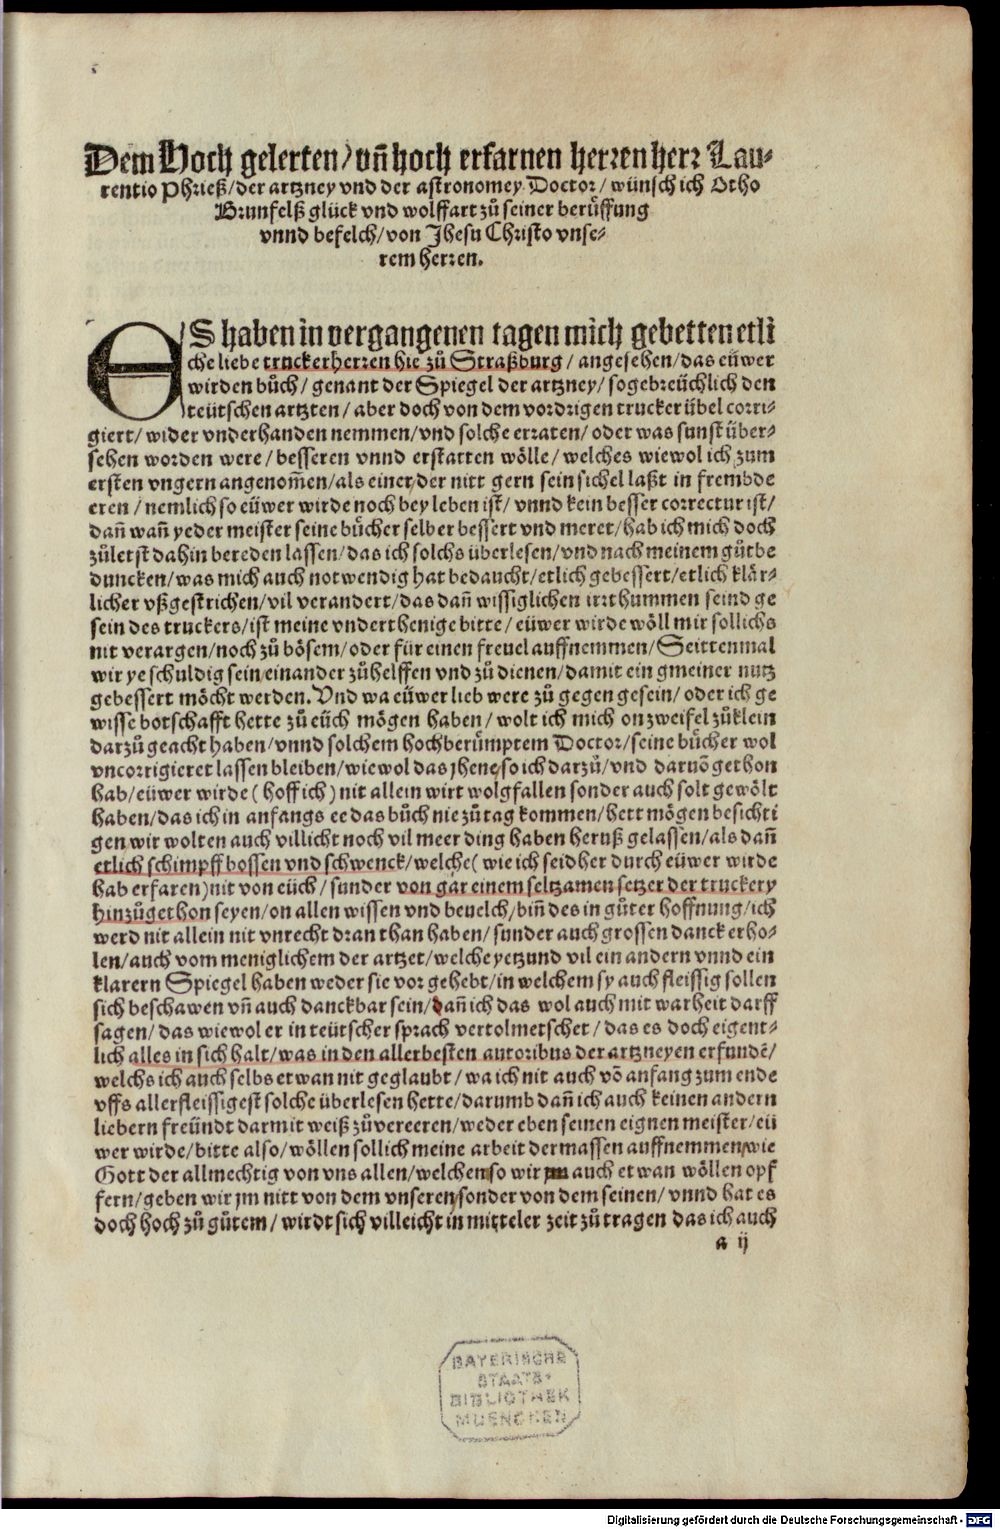 Dem Hoch gelerten / vñ hoch erfarnen herren herr Lau⸗
rentio Phrieß / der artzney vnd der astronomey Doctor / wünsch ich Otho
Brunfelß glück vnd wolffart zů seiner berüffung
vnnd befelch / von Jhesu Christo vnse⸗
rem herren.
ES haben in vergangenen tagen mich gebetten etli
che liebe truckerherren hie zů Straßburg / angesehen / das eüwer
wirden bůch / genant der Spiegel der artzney / so gebreüchlich den
teütschen artzten / aber doch von dem vordrigen trucker übel corri⸗
giert / wider vnderhanden nemmen / vnd solche erraten / oder was sunst über⸗
sehen worden were / besseren vnnd erstatten wölle / welches wiewol ich zum
ersten vngern angenom̃en / als einer / der nitt gern sein sichel laßt in frembde
eren / nemlich so eüwer wirde noch bey leben ist / vnnd kein besser correctur ist /
dañ wañ yeder meister seine bücher selber bessert vnd meret / hab ich mich doch
zůletst dahin bereden lassen / das ich solchs überlesen / vnd nach meinem gůtbe
duncken / was mich auch notwendig hat bedaucht / etlich gebessert / etlich klär⸗
licher vßgestrichen / vil verandert / das dañ wissiglichen irrthummen seind ge
sein des truckers / ist meine vnderthenige bitte / eüwer wirde wöll mir sollichs
nit verargen / noch zů bösem / oder für einen freuel auffnemmen / Seittenmal
wir ye schuldig sein / einander zůhelffen vnd zů dienen / damit ein gmeiner nutz
gebessert möcht werden. Vnd wa eüwer lieb were zů gegen gesein / oder ich ge
wisse botschafft hette zů eüch mögen haben / wolt ich mich on zweifel zůklein
darzů geacht haben / vnnd solchem hochberümptem Doctor / seine bücher wol
vncorrigieret lassen bleiben / wiewol das jhene / so ich darzů / vnd daruō gethon
hab / eüwer wirde ( hoff ich ) nit allein wirt wolgfallen sonder auch solt gewölt
haben / das ich in anfangs ee das bůch nie zů tag kommen / hett mögen besichti
gen / wir wolten auch villicht noch vil meer ding haben heruß gelassen / als dañ
etlich schimpff bossen vnd schwenck / welche ( wie ich seidher durch eüwer wirde
hab erfaren ) nit von eüch / sunder von gar einem seltzamen setzer der truckery
hinzůgethon seyen / on allen wissen vnd beuelch / biñ des in gůter hoffnung / ich
werd nit allein nit vnrecht dran than haben / sunder auch grossen danck erho⸗
len / auch vom meniglichem der artzet / welche yetzund vil ein andern vnnd ein
klarern Spiegel haben weder sie vor gehebt / in welchem sy auch fleissig sollen
sich beschawen vñ auch danckbar sein / dañ ich das wol auch mit warheit darff
sagen / das wiewol er in teütscher sprach vertolmetschet / das es doch eigent⸗
lich alles in sich halt / was in den allerbesten autoribus der artzneyen erfundē /
welchs ich auch selbs etwan nit geglaubt / wa ich nit auch vō anfang zum ende
vffs allerfleissigest solche überlesen hette / darumb dañ ich auch keinen andern
liebern freündt darmit weiß zůvereeren / weder eben seinen eignen meister / eü
wer wirde / bitte also / wöllen sollich meine arbeit dermassen auffnemmen / wie
Gott der allmechtig von vns allen / welchen so wir jm auch etwan wöllen opf
fern / geben wir jm nitt von dem vnseren / sonder von dem seinen / vnnd hat es
doch hoch zů gůtem / wirdt sich villeicht in mitteler zeit zů tragen das ich auch
a ij
BAYERISCHE
STAATS-
BIBLIOTHEK
MUENCHEN
Digitalisierung gefördert durch die Deutsche Forschungsgemeinschaft - DFG